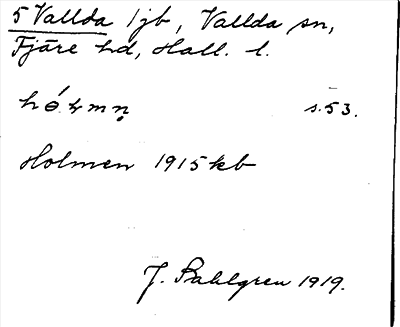 5 Vallda 1 jb, Vallda sn,
Fjäre hd, Hall. l.
s. 53.
Holmen 1915 kb
J. Sahlgren 1919.